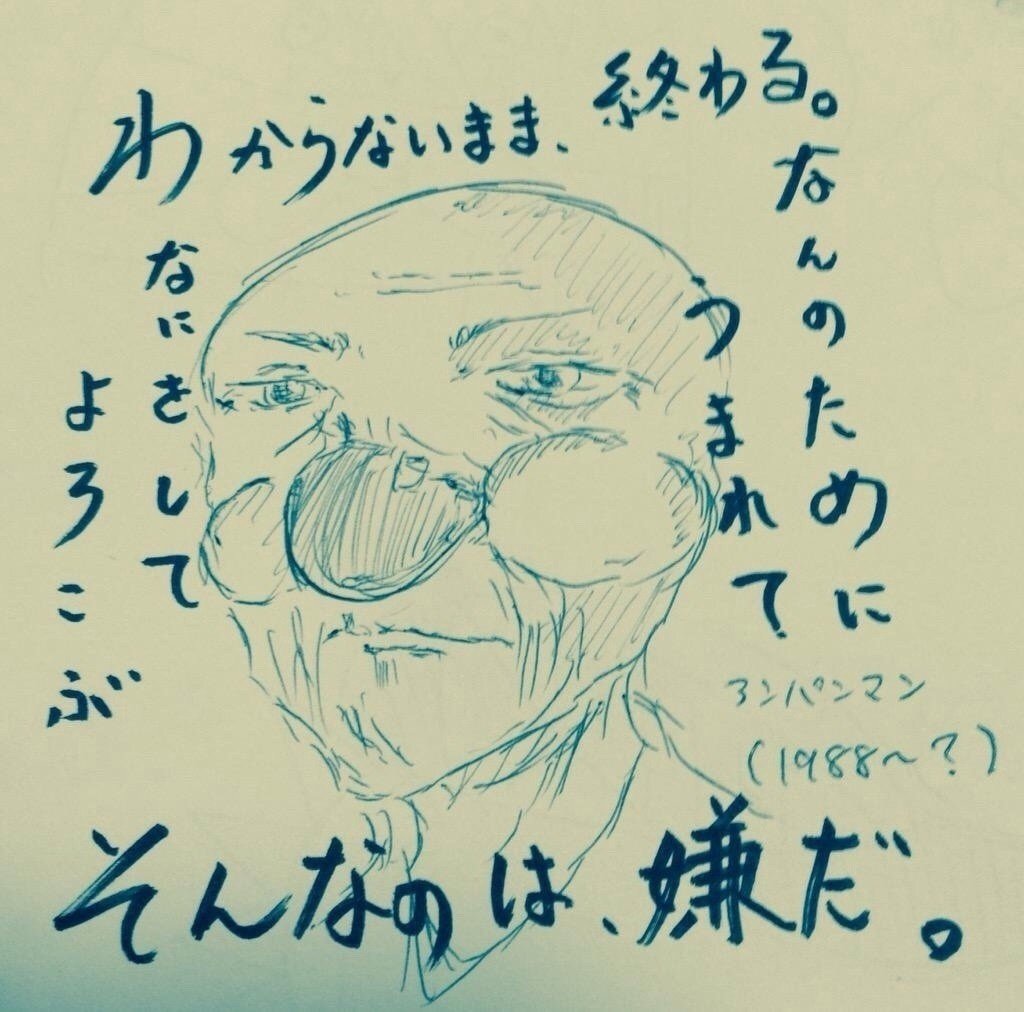 わからないまま、終わる。
なんのために
うまれて
なにをして
よろこぶ
アンパンマン
(1988〜?)
そんなのは、嫌だ。